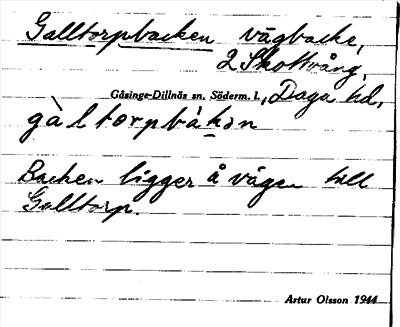 Galltorpbacken vägbacke,
2 Skottvång,
Gåsinge-Dillnäs sn. Söderm. l., Daga hd.
gàltorpbàkən
Backen ligger å vägen till
Galltorp.
Artur Olsson 1944